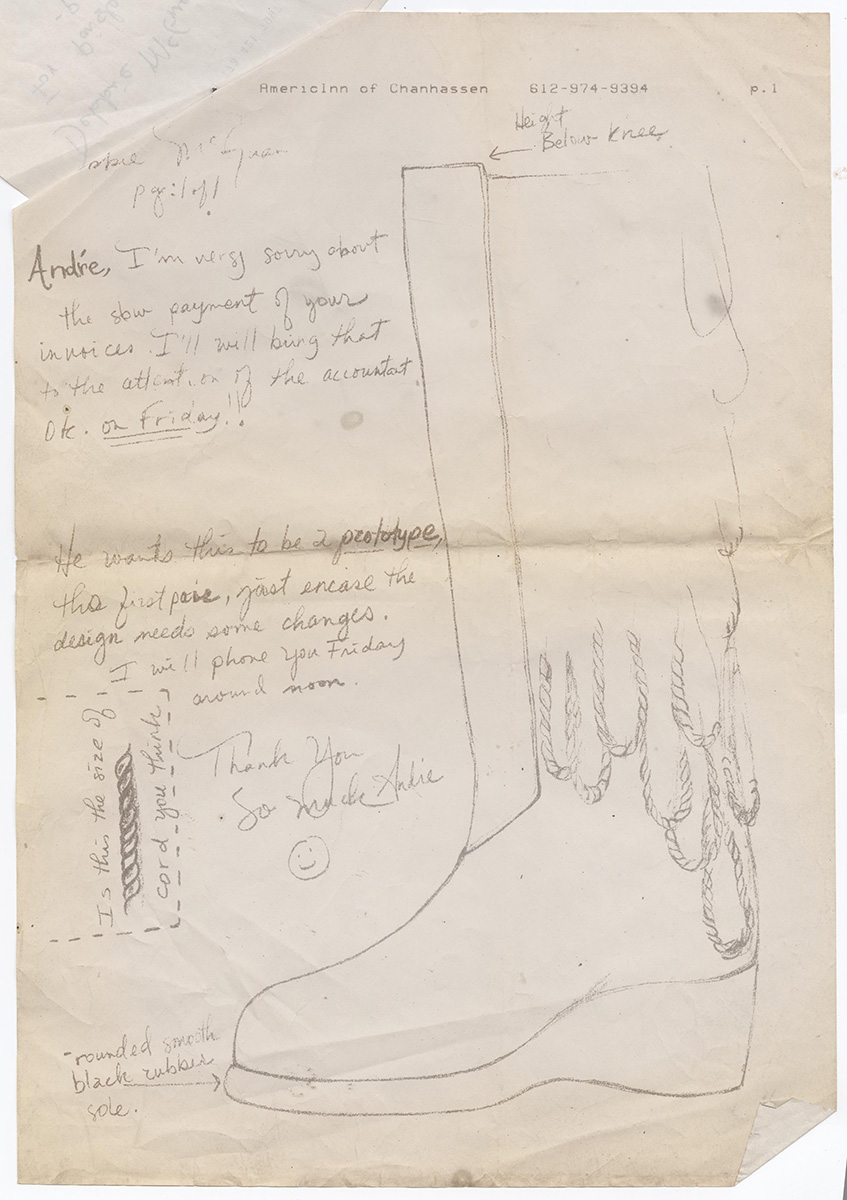 AmericInn of Chanhassen 612-974-9394 p.1
Height
Below Knee
pg: 1 of 1
Andrée, I'm very sorry about
the slow payment of your
invoices. I'll will bring that
to the attention of the accountant
Ok. on Friday!!
He wants this to be a prototype,
this first paire, jūst encase the
design needs some changes.
I will phone you Friday
around noon.
Is this the size of
cord you think
Thank You
So Much Andie
-rounded smooth
black rubber
sole.